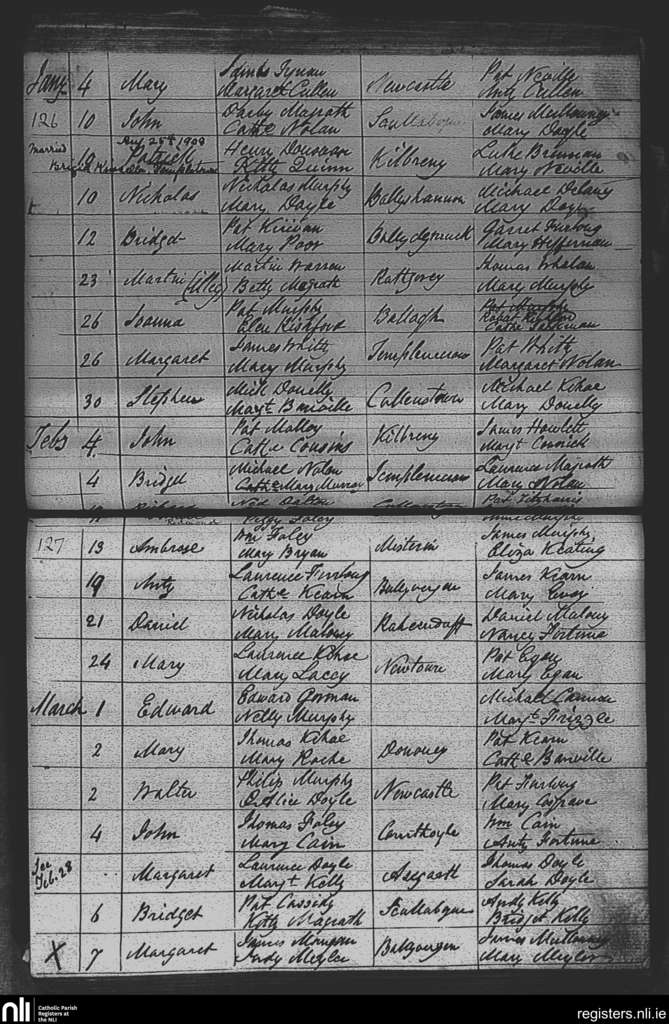 Jany 4 Mary James Fynan Newcastle Pat Neville
Margaret Cullen Anty Cullen
126 10 John Darby Magrath Scullabogue James Mullowney
Cathe Nolan Mary Doyle
Married Augt 25th 1908
10 Patrick Henry Donovan Kilbreny Luke Brennan
Kitty Quinn Mary Neville
10 Nicholas Nicholas Murphy Ballyshannon Michael Delany
Mary Doyle Mary
12 Bridget Pat Kirivan Mary Poor Garret Furlong
Mary Heffernan
23 Martin Martin Warren Thomas Whelan
Betty Magrath Mary Murphy
26 Joanna Pat Murphy Ballagh
Elen Kishford
26 Margaret James White Templenecrow Pat White
Mary Murphy Margaret Nolan
30 Stephen Mick Donelly Cullenstown Michael Kehoe
Mayt Banville Mary Donelly
Feb 4 John Pat Malloy Kilbreny James Howlett
Cathe Cousins Mayt
4 Bridget Michael Nolan Templenecrow Laurence Magrath
Cathe Mary Murray Mary Nolan
Richard Ned Dalton Pat Fitzharris
Redmond Peggy Foley
127 13 Ambrose Wm Foley Misterin James Murphy
Mary Bryan Eliza Keating
19 Anty Laurence Furlong James Kearn
Cathe Kearn Mary
21 Daniel Nicholas Doyle Daniel Malony
Mary Malony Nancy Fortune
24 Mary Laurence Kehoe Newtown Pat Egan
Mary Lacey Mary Egan
March 1 Edward Edward Gorman Michael
Nelly Murphy Mayt Frizzle
2 Mary Thomas Kehoe Donouey Pat Kearn
Mary Roche Cathe Banville
2 Walter Philip Murphy Newcastle Pat Furlong
Alice Doyle Mary Cosgrave
4 John Thomas Foley Courthoyle Wm Cain
Mary Cain Anty Fortune
See Feb. 28 Margaret Laurence Doyle Thomas Doyle
Mayt Kelly Sarah Doyle
6 Bridget Pat Cassidy Scullabogue Andy Kelly
Kitty Magrath Bridget Kelly
X 7 Margaret James James Mullowney
Judy Meyler Mary Meyler
nli Catholic Parish
Registers
at the NLI
registers.nli.ie